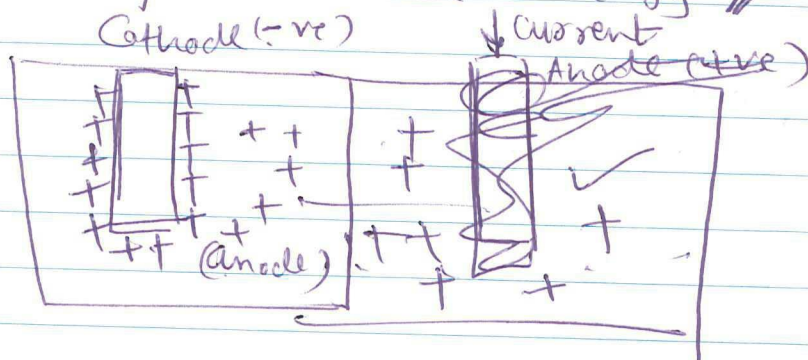 Cathode (-ve)
↓ Current
Anode (+ve)
(anode)